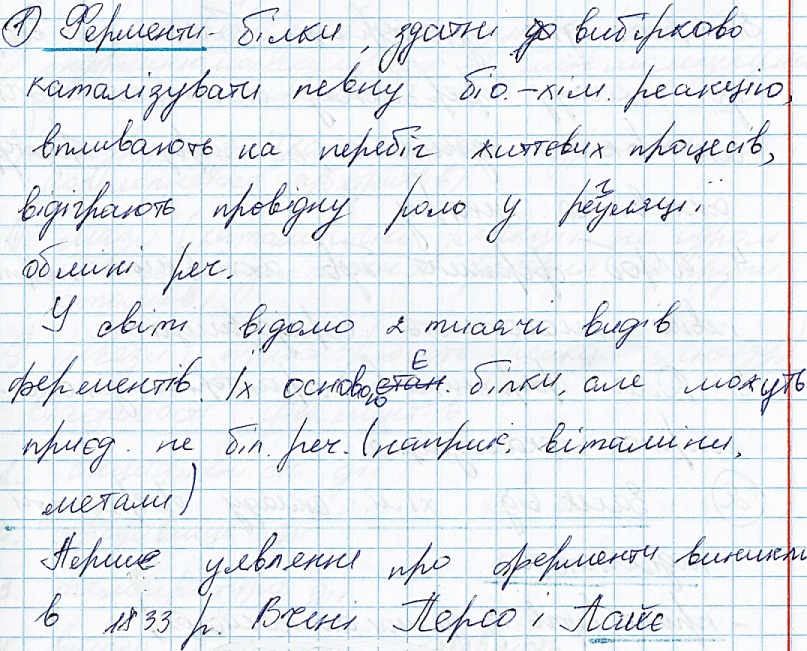 ① Ферменти - білки, здатні до вибірково
каталізувати певну біо.-хім. реакцію,
впливають на перебіг життєвих процесів,
відіграють провідну роль у регуляції
обміні реч.
У світі відомо 2 тисячі видів
ферментів. Їх основою є білки, але можуть
приєд. не біл. реч. (наприк. вітаміни,
метали)
Перше уявлення про ферменти виникли
в 1833 р. Вчені Персо і Пайє